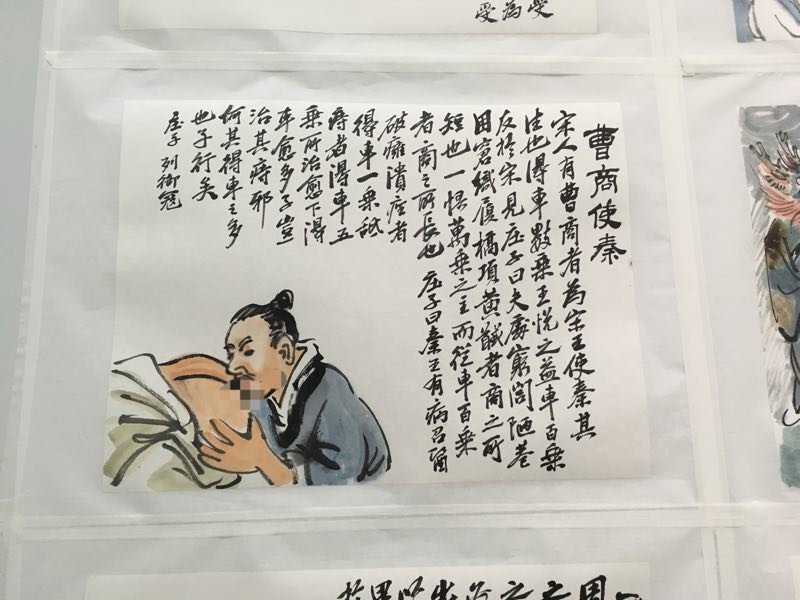 曹商使秦
宋人有曹商者為宋王使秦其
往也得車數乘王悅之益車百乘
反於宋見庄子曰夫處窮閭陋巷
困窘織屨槁項黃馘者商之所
短也一悟萬乘之主而從車百乘
者商之所長也 庄子曰秦王有病召醫
破癰潰痤者
得車一乘舐
痔者得車五
乘所治愈下得
車愈多子豈
治其痔邪
何其得車之多
也子行矣
庄子 列御寇